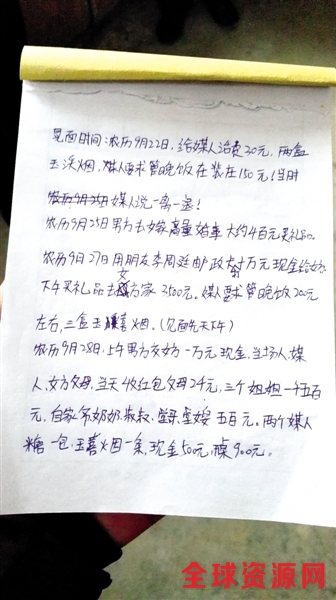 见面时间:农历9月22日,给媒人路费30元,两盒
玉溪烟,媒人要求管晚饭在 在150元(当时
媒人说一离一退!
农历9月25日男方去女家商量婚事大约4百元买礼品.
农历9月27日用朋友李周廷邮政 万元现金给女
下午买礼品去女方家3500元.媒人要求管晚饭200元
左右,三盒玉溪喜烟.(见面先天下午)
农历9月28日,上午男方交女方一万元现金,当场人,媒
人,女方父母,当天收红包父母24元,三个姐姐一千五百
元,自家爷奶奶叔叔, 五百元。两个媒人
糖一包,玉喜烟一条,现金50元, 900元。
全球资源网